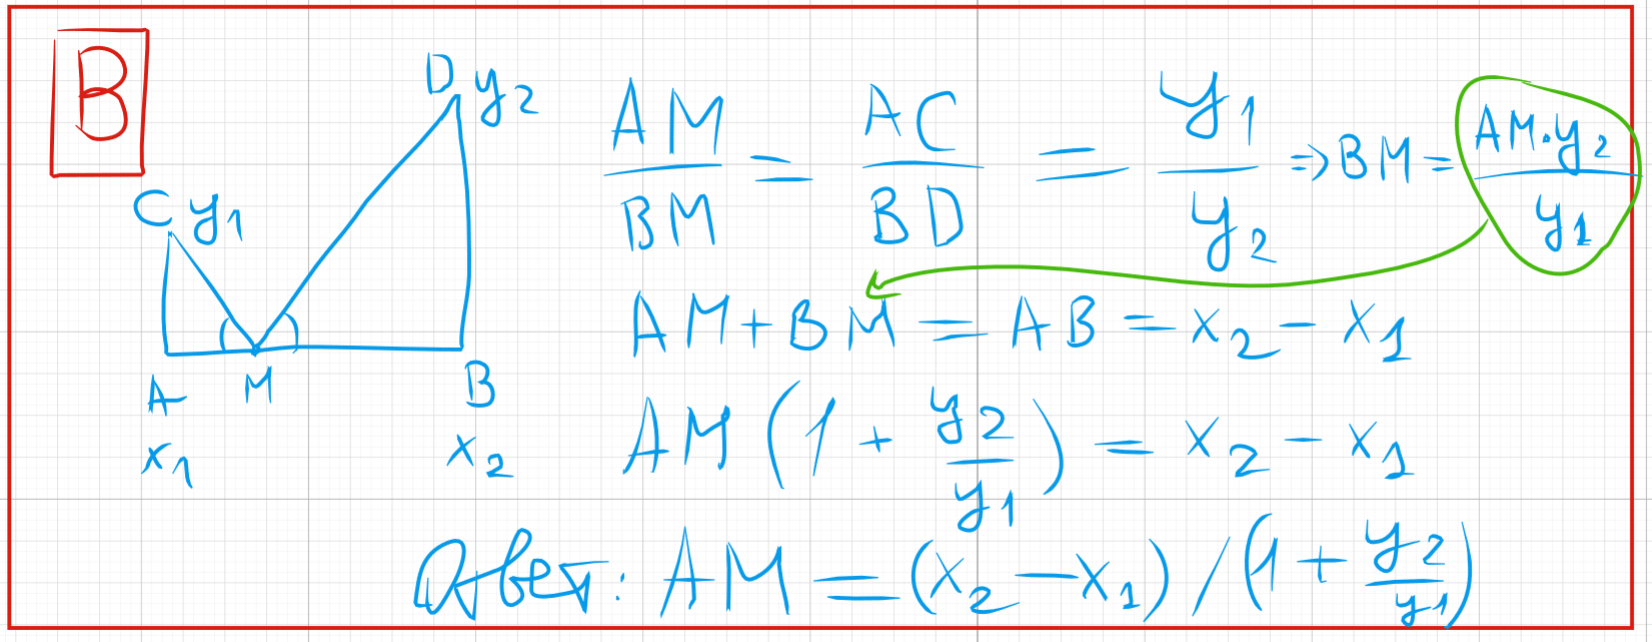 B
D y2
C y1
A M B
x1 x2
AM/BM = AC/BD = y1/y2 => BM = AM·y2/y1
AM + BM = AB = x2 - x1
AM(1 + y2/y1) = x2 - x1
Ответ: AM = (x2 - x1) / (1 + y2/y1)